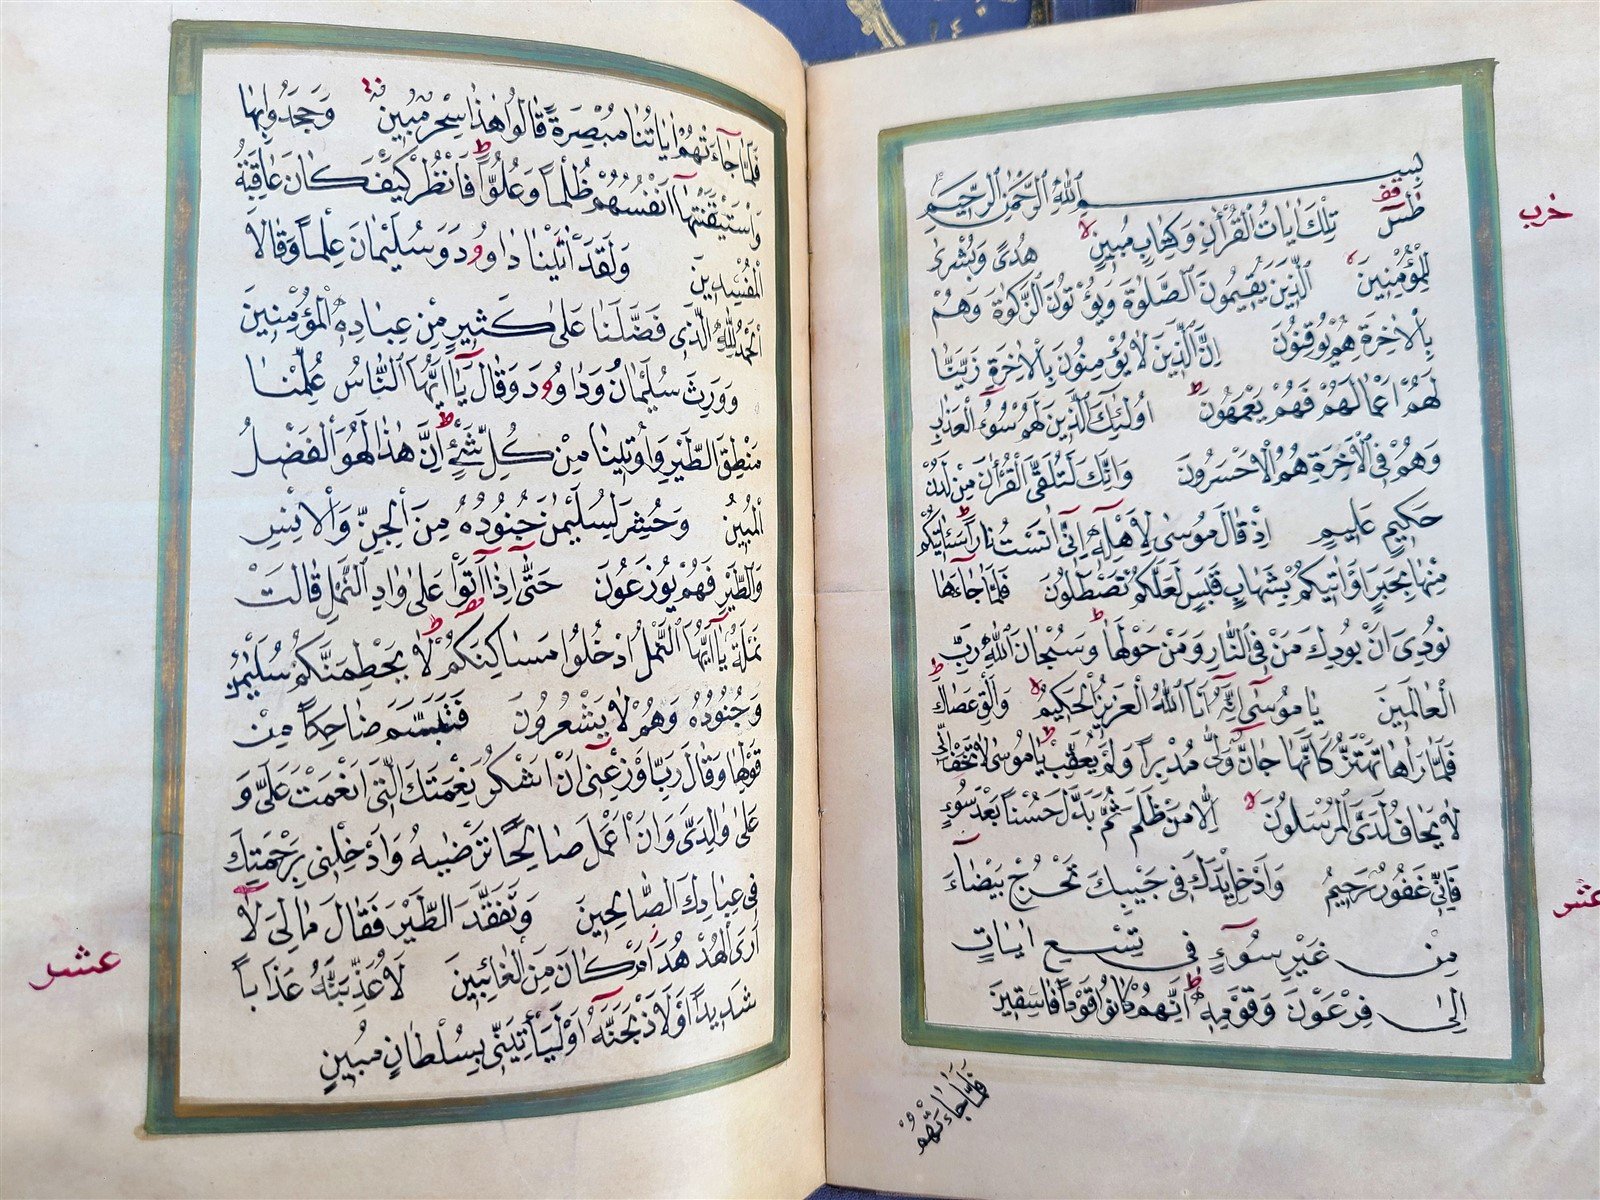 بِسْــــــمِ اللّٰهِ الرَّحْمٰنِ الرَّحِيمِ
طٰسٓ قف تِلْكَ اٰيَاتُ الْقُرْاٰنِ وَكِتَابٍ مُبِينٍ لا هُدًى وَبُشْرٰى
حزب
لِلْمُؤْمِنِينَ لا اَلَّذِينَ يُقِيمُونَ الصَّلٰوةَ وَيُؤْتُونَ الزَّكٰوةَ وَهُمْ
بِالْاٰخِرَةِ هُمْ يُوقِنُونَ اِنَّ الَّذِينَ لَا يُؤْمِنُونَ بِالْاٰخِرَةِ زَيَّنَّا
لَهُمْ اَعْمَالَهُمْ فَهُمْ يَعْمَهُونَ ط اُولٰئِكَ الَّذِينَ لَهُمْ سُوٓءُ الْعَذَابِ
وَهُمْ فِى الْاٰخِرَةِ هُمُ الْاَخْسَرُونَ وَاِنَّكَ لَتُلَقَّى الْقُرْاٰنَ مِنْ لَدُنْ
حَكِيمٍ عَلِيمٍ اِذْ قَالَ مُوسٰى لِاَهْلِهٖٓ اِنِّىٓ اٰنَسْتُ نَارًا ط سَاٰتِيكُمْ
مِنْهَا بِخَبَرٍ اَوْ اٰتِيكُمْ بِشِهَابٍ قَبَسٍ لَعَلَّكُمْ تَصْطَلُونَ فَلَمَّا جَاءَهَا
نُودِىَ اَنْ بُورِكَ مَنْ فِى النَّارِ وَمَنْ حَوْلَهَا ط وَسُبْحَانَ اللّٰهِ رَبِّ
الْعَالَمِينَ يَا مُوسٰىٓ اِنَّهُٓ اَنَا اللّٰهُ الْعَزِيزُ الْحَكِيمُ لا وَاَلْقِ عَصَاكَ ط
فَلَمَّا رَاٰهَا تَهْتَزُّ كَاَنَّهَا جَانٌّ وَلّٰى مُدْبِرًا وَلَمْ يُعَقِّبْ ط يَا مُوسٰى لَا تَخَفْ اِنِّى
لَا يَخَافُ لَدَىَّ الْمُرْسَلُونَ لا اِلَّا مَنْ ظَلَمَ ثُمَّ بَدَّلَ حُسْنًا بَعْدَ سُوءٍ
فَاِنِّى غَفُورٌ رَحِيمٌ وَاَدْخِلْ يَدَكَ فِى جَيْبِكَ تَخْرُجْ بَيْضَآءَ
عشر
مِنْ غَيْرِ سُوٓءٍ فِى تِسْعِ اٰيَاتٍ
اِلٰى فِرْعَوْنَ وَقَوْمِهٖ ط اِنَّهُمْ كَانُوا قَوْمًا فَاسِقِينَ
فَلَمَّا جَاءَتْهُمْ
فَلَمَّا جَآءَتْهُمْ اٰيَاتُنَا مُبْصِرَةً قَالُوا هٰذَا سِحْرٌ مُبِينٌ وَجَحَدُوا بِهَا
وَاسْتَيْقَنَتْهَآ اَنْفُسُهُمْ ظُلْمًا وَعُلُوًّا ط فَانْظُرْ كَيْفَ كَانَ عَاقِبَةُ
الْمُفْسِدِينَ وَلَقَدْ اٰتَيْنَا دَاوُودَ وَسُلَيْمَانَ عِلْمًا وَقَالَا
الْحَمْدُ لِلّٰهِ الَّذِى فَضَّلَنَا عَلٰى كَثِيرٍ مِنْ عِبَادِهِ الْمُؤْمِنِينَ
وَوَرِثَ سُلَيْمَانُ دَاوُودَ وَقَالَ يَآ اَيُّهَا النَّاسُ عُلِّمْنَا
مَنْطِقَ الطَّيْرِ وَاُوتِينَا مِنْ كُلِّ شَىْءٍ ط اِنَّ هٰذَا لَهُوَ الْفَضْلُ
الْمُبِينُ وَحُشِرَ لِسُلَيْمٰنَ جُنُودُهُ مِنَ الْجِنِّ وَالْاِنْسِ
وَالطَّيْرِ فَهُمْ يُوزَعُونَ حَتّٰىٓ اِذَآ اَتَوْا عَلٰى وَادِ النَّمْلِ قَالَتْ
نَمْلَةٌ يَآ اَيُّهَا النَّمْلُ ادْخُلُوا مَسَاكِنَكُمْ ط لَا يَحْطِمَنَّكُمْ سُلَيْمٰنُ
وَجُنُودُهُ وَهُمْ لَا يَشْعُرُونَ فَتَبَسَّمَ ضَاحِكًا مِنْ
قَوْلِهَا وَقَالَ رَبِّ اَوْزِعْنِىٓ اَنْ اَشْكُرَ نِعْمَتَكَ الَّتِى اَنْعَمْتَ عَلَىَّ وَ
عَلٰى وَالِدَىَّ وَاَنْ اَعْمَلَ صَالِحًا تَرْضٰيهُ وَاَدْخِلْنِى بِرَحْمَتِكَ
فِى عِبَادِكَ الصَّالِحِينَ وَتَفَقَّدَ الطَّيْرَ فَقَالَ مَا لِىَ لَآ
اَرَى الْهُدْهُدَ اَمْ كَانَ مِنَ الْغَائِبِينَ لَاُعَذِّبَنَّهُ عَذَابًا
عشر
شَدِيدًا اَوْ لَاَذْبَحَنَّهُٓ اَوْ لَيَأْتِيَنِّى بِسُلْطَانٍ مُبِينٍ